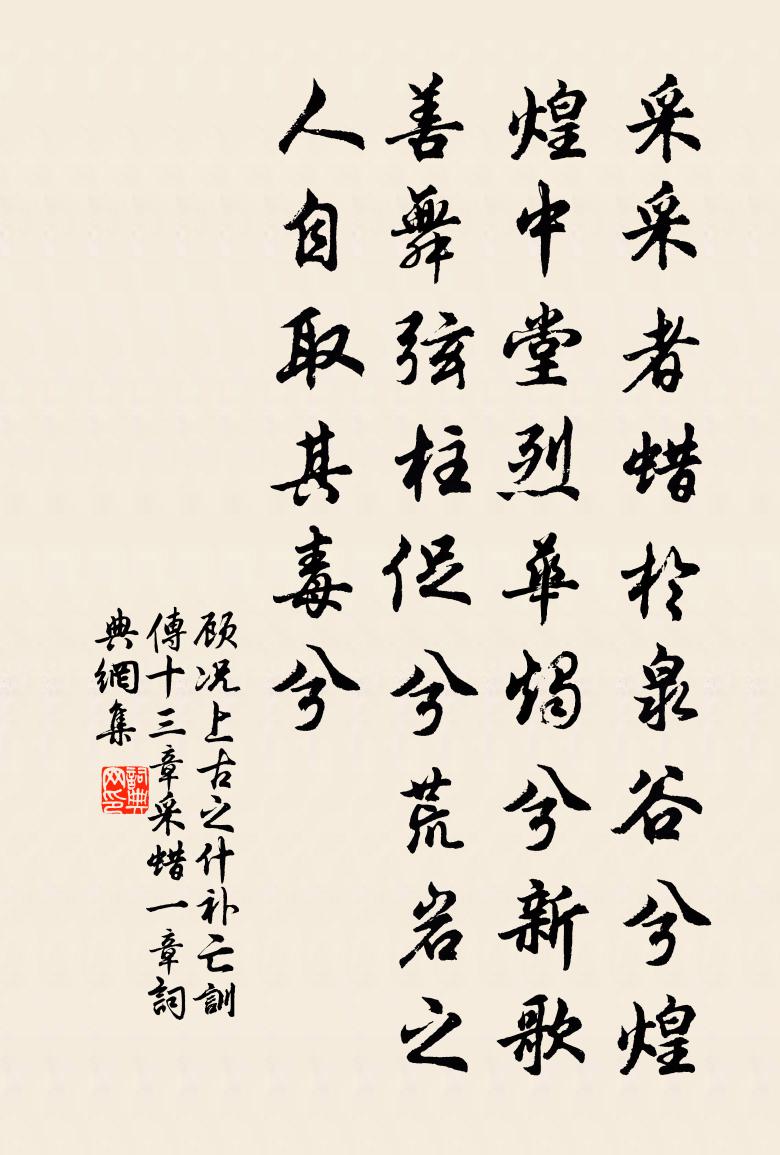 采采者蜡於泉谷兮煌
煌中堂烈華燭兮新歌
善舞弦柱促兮荒岩之
人自取其毒兮
顾况上古之什补亡訓
傳十三章采蜡一章詞
典網集
詞典网印